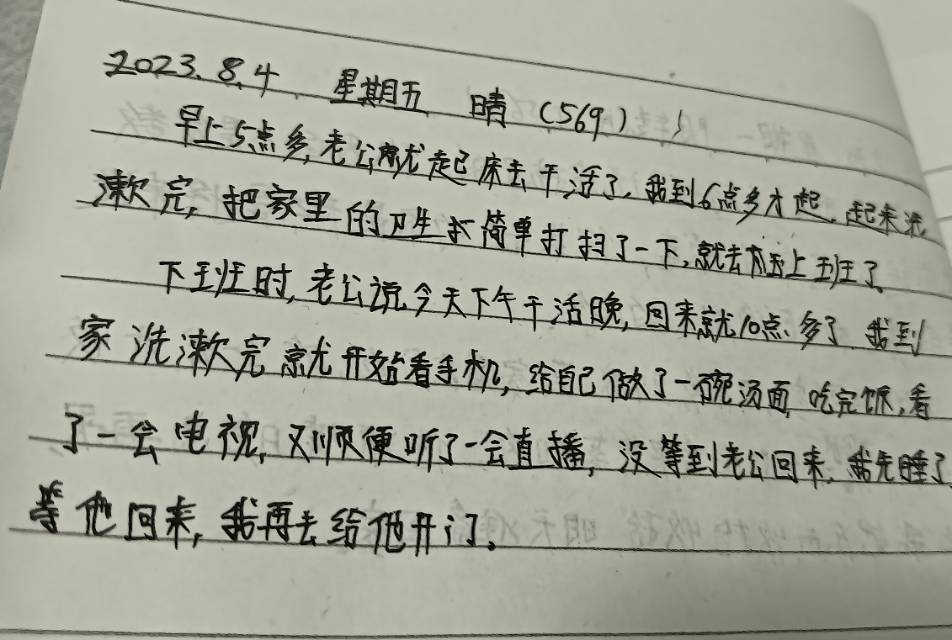 2023.8.4 星期五 晴 (569)
早上5点多,老公就起床去干活了,我到6点多才起,起来洗
漱完,把家里的卫生我简单打扫了一下,就去上班了。
下班时,老公说今天下午干活晚,回来就10点多了 我到
家洗漱完就开始看手机,给自己做了一碗汤面,吃完饭,看
了一会电视,又顺便听了一会直播,没等到老公回来,我先睡了
等他回来,我再去给他开门。